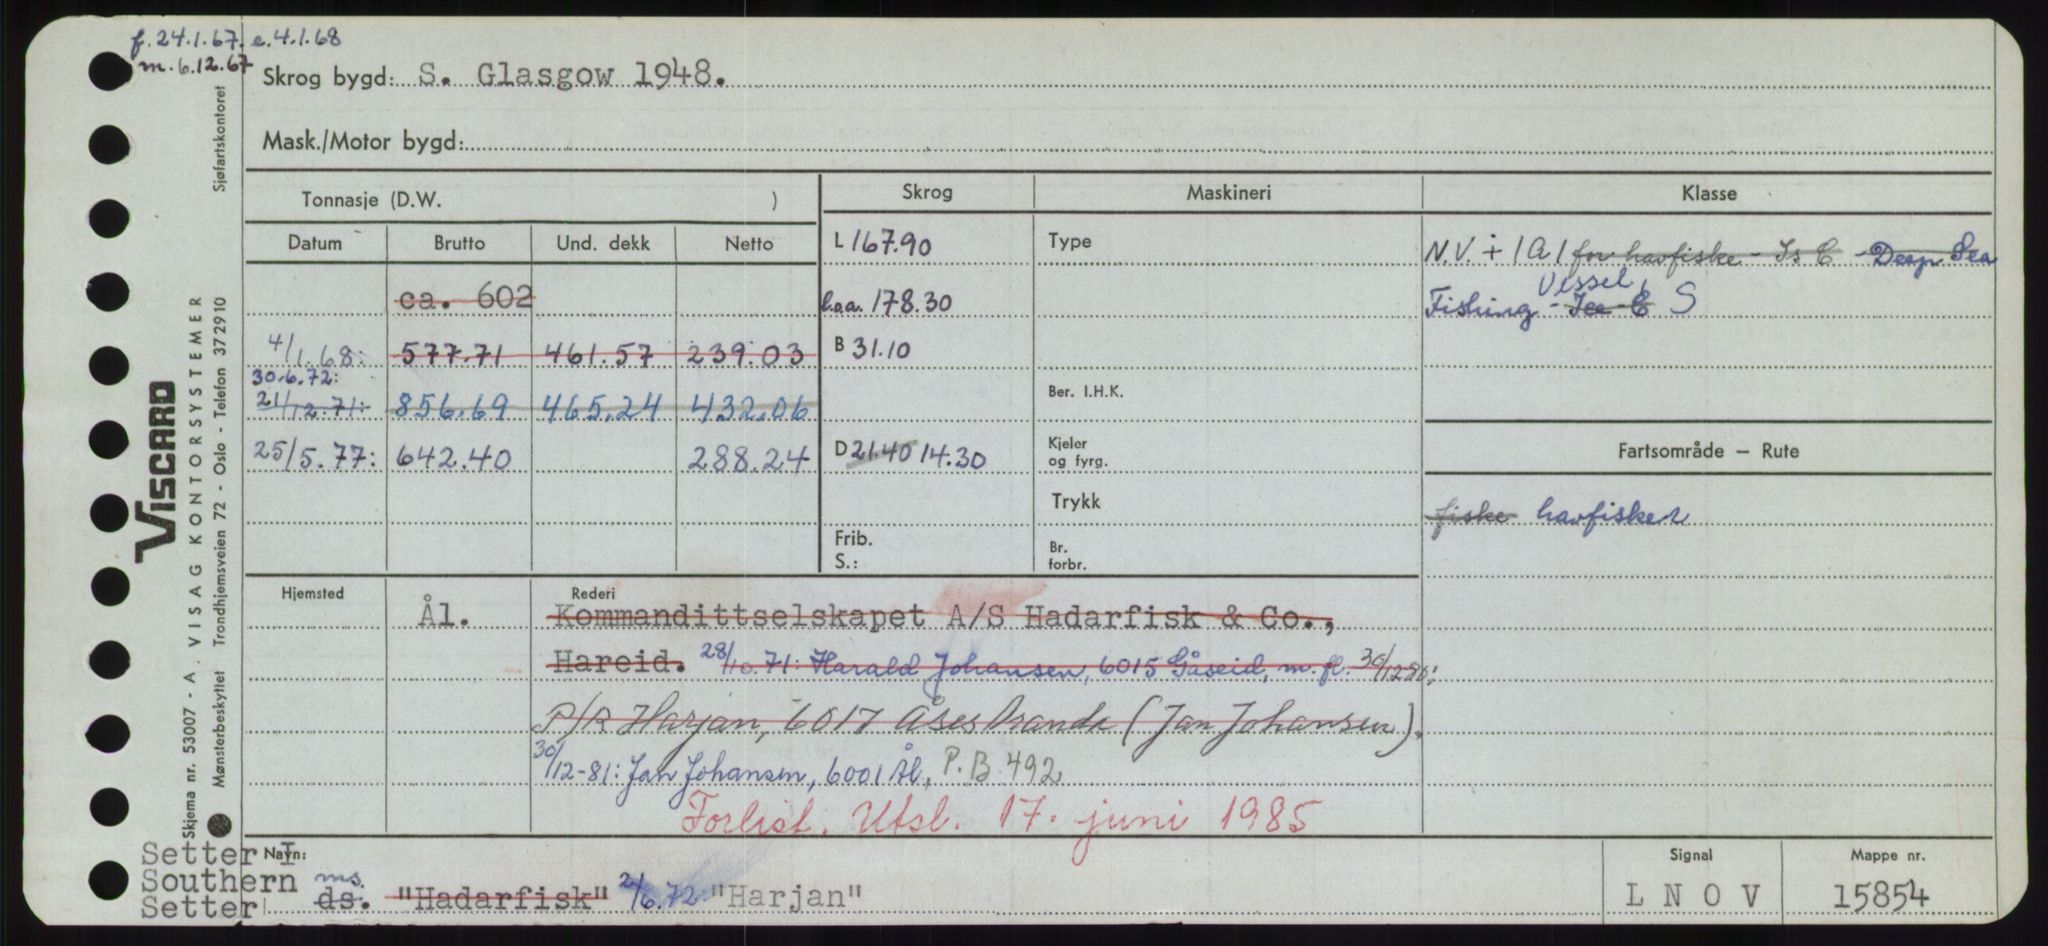 f. 24.1.67. e. 4.1.68
m. 6.12.67
Skrog bygd: S. Glasgow 1948.
Mask./Motor bygd:
Tonnasje (D.W. )
Skrog
Maskineri
Klasse
Datum Brutto Und. dekk Netto
L 167.90
Type
N.V. + 1A1 for havfiske - Is C - Deep Sea
Vessel,
ca. 602
l.o.a. 178.30
Fishing - Ice - C S
4/1.68: 577.71 461.57 239.03
B 31.10
30.6.72:
21/12.71: 856.69 465.24 432.06
Ber. I.H.K.
25/5.77: 642.40 288.24
D 21.40 14.30
Kjeler
og fyrg.
Fartsområde – Rute
Trykk
fiske havfisker
Frib.
S.:
Br.
forbr.
Hjemsted
Ål.
Rederi
Kommandittselskapet A/S Hadarfisk & Co.,
Hareid. 28/10.71: Harald Johansen, 6015 Gåseid, m. fl. 30/12-80:
P/R Harjan, 6017 Åsestranda (Jan Johansen).
30/12-81: Jan Johansen, 6001 Ål, P.B. 492
Forlist. Utsl. 17. juni 1985
Setter I
Southern
Setter
Navn:
ms.
ds. "Hadarfisk" 2/6.72 "Harjan"
Signal
L N O V
Mappe nr.
15854
Skjema nr. 53007 - A. VISAG KONTORSYSTEMER
Mønsterbeskyttet Trondhjemsveien 72 - Oslo - Telefon 372910 Sjøfartskontoret
VISCARD